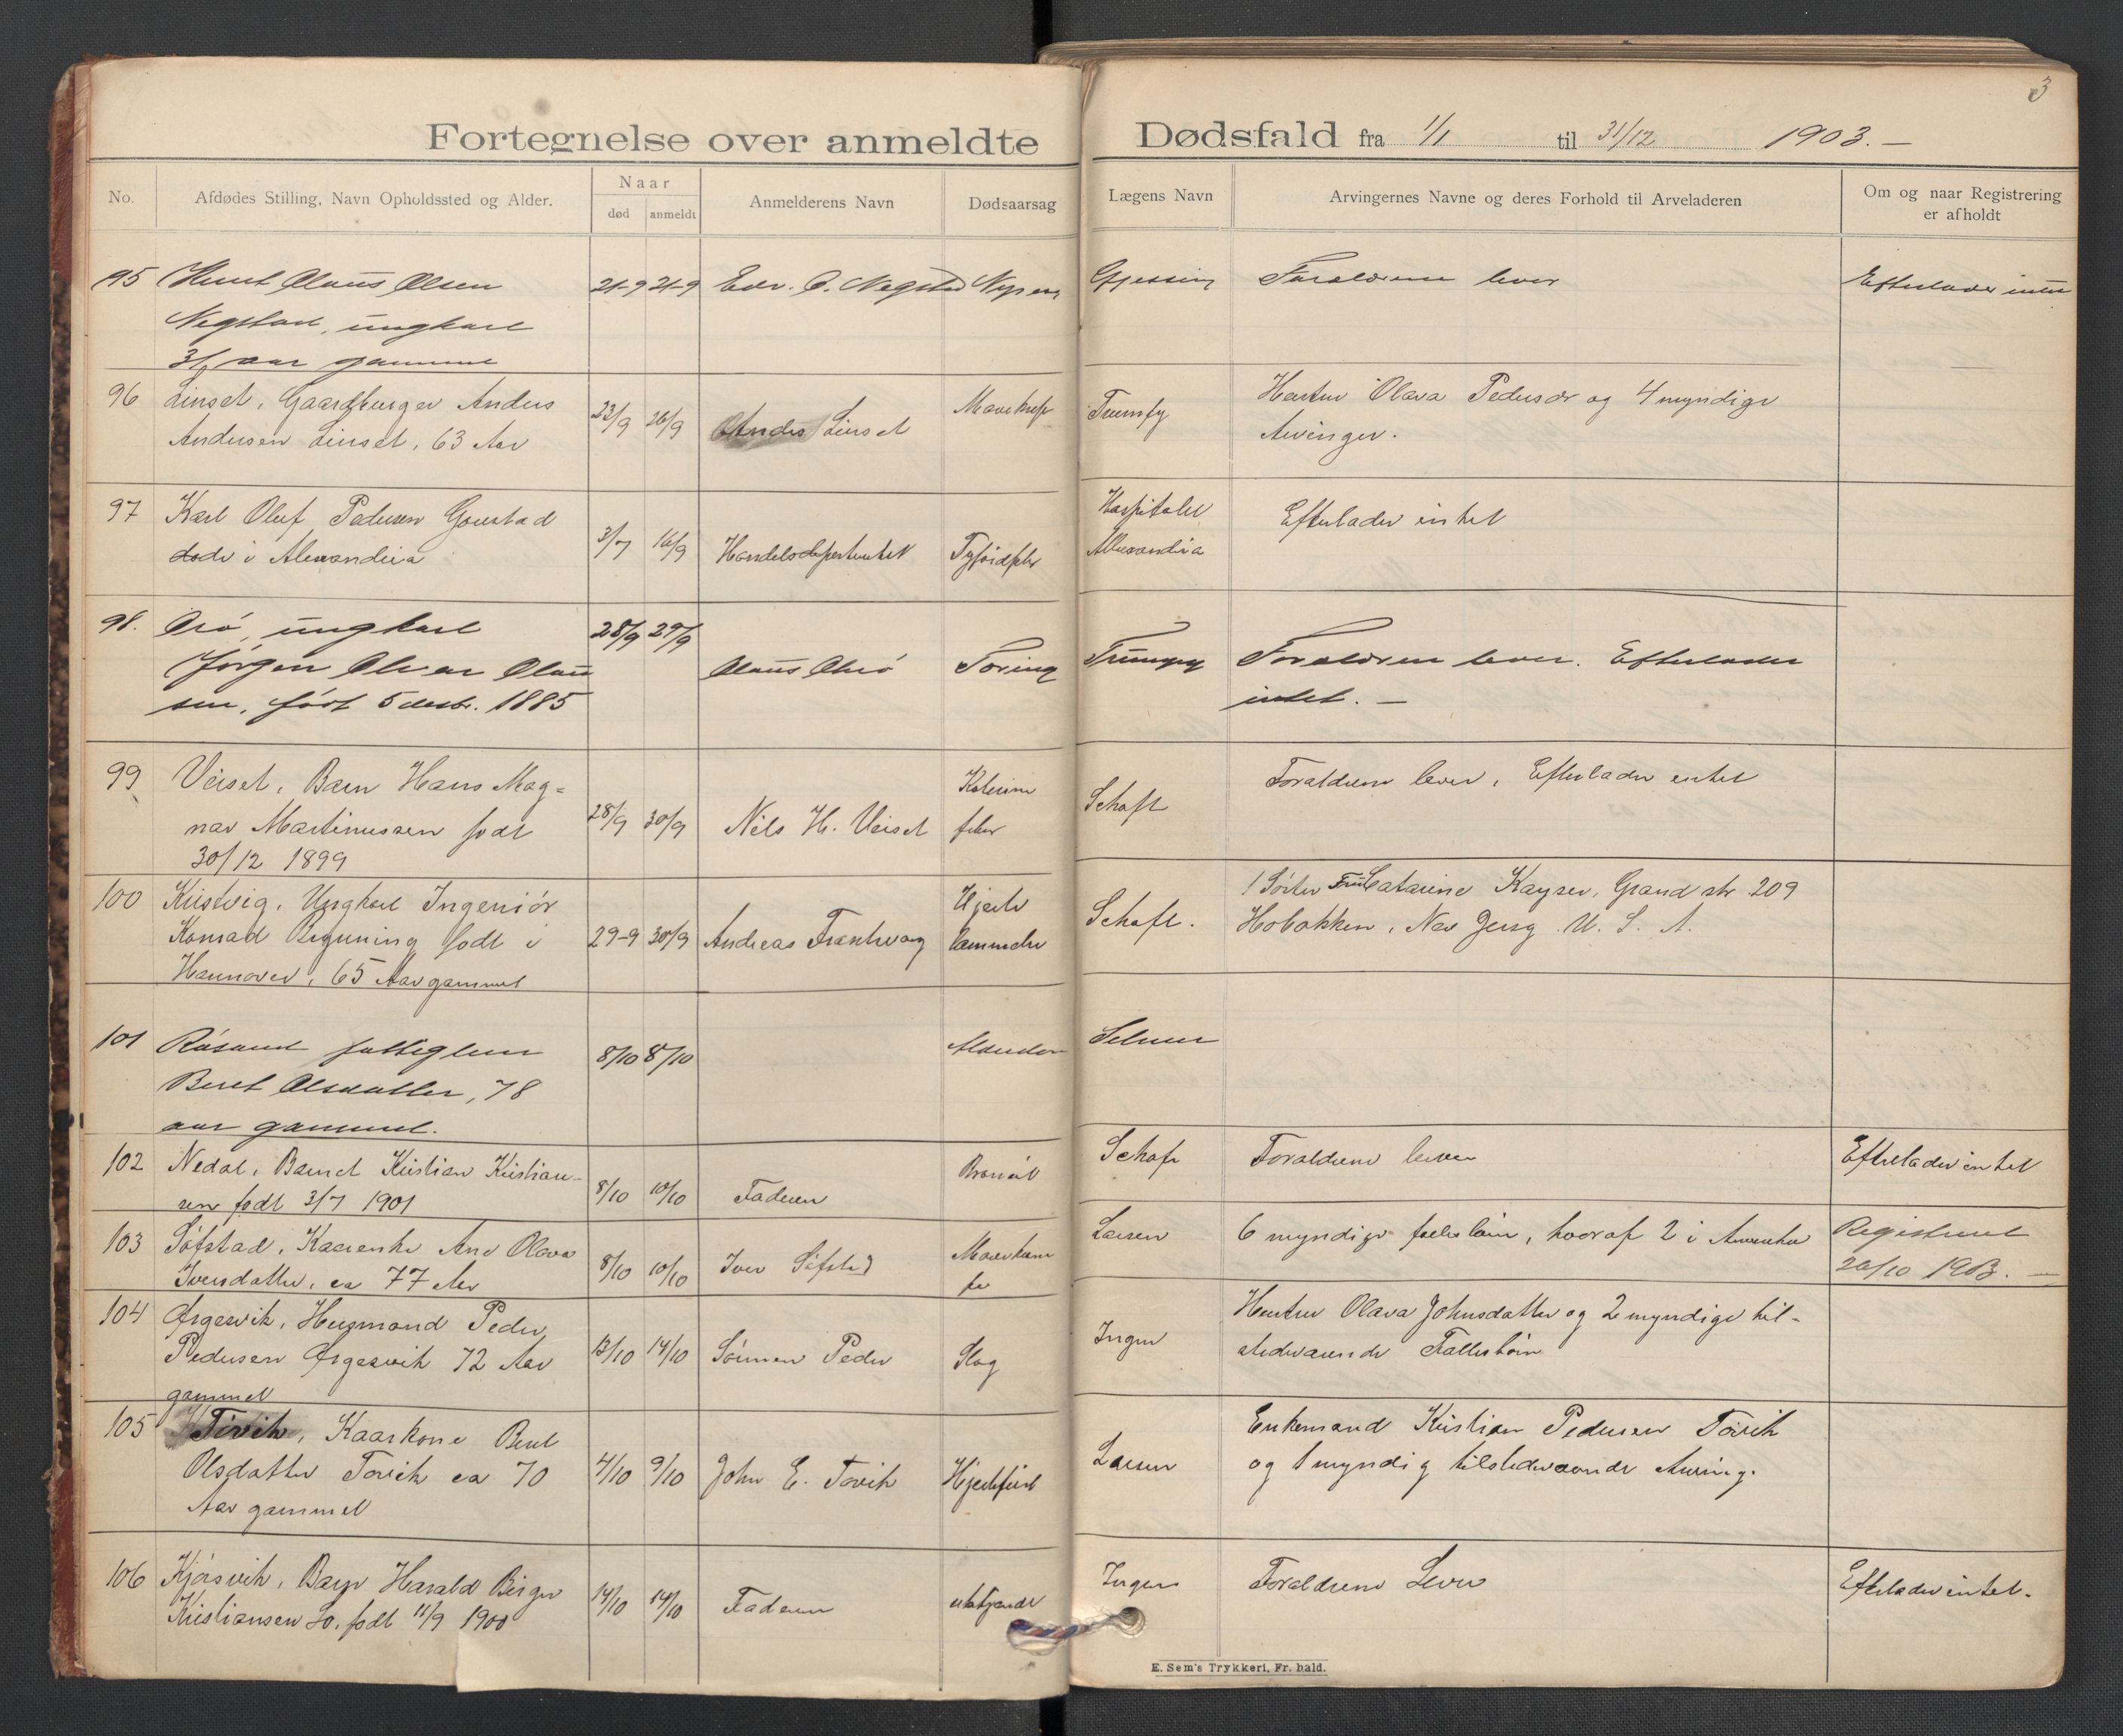 3
Fortegnelse over anmeldte Dødsfald fra 1/1 til 31/12 1903. —
No.
Afdødes Stilling, Navn Opholdssted og Alder.
Naar
død
anmeldt
Anmelderens Navn
Dødsaarsag
Lægens Navn
Arvingernes Navne og deres Forhold til Arveladeren
Om og naar Registrering
er afholdt
95
Knut Olaus Olsen
Negstad, ungkarl
aar gammel
21-9
21-9
Edv. O. Negstad
Gjessing
Forældrene lever
Efterlader intet
96
Linset, Gaardbruger Anders
Andersen Linset, 63 Aar
23/9
26/9
Anders Linset
Mavekræft
Trumpy
Hustru Olava Pedersdr og 4 myndige
Arvinger.
97
Karl Oluf Pedersen Goustad
døde i Alexandria
3/7
16/9
Handelsdepartentet
Tyfoidfeber
Hospitalet
Alexandria
Efterlader intet
98.
ungkarl
Jørgen Olaus
sen, født 5 desbr. 1885
28/9
29/9
Olaus
Tæring
Trumpy
Forældrene lever. Efterlader
intet. —
99
Veiset, Barn Hans Mag=
nar Martinussen født
30/12 1899
28/9
30/9
Nils H. Veiset
feber
Schaft
Forældrene lever, Efterlader intet
100
Kristvig, Ungkarl Ingeniør
Konrad født i
Hannover, 65 Aar gammel
29-9
30/9
Andreas
Hjerte
lammelse
Schaft.
1 Søster Fru Catarine Kayser, Grand str 209
Hobokken, New Jersy U. S. A.
101
fattiglem
Beret Olsdatter, 78
aar gammel.
8/10
8/10
Alderdom
Selmer
102
Nedal, Barnet Kristian Kristian-
sen født 3/7 1901
8/10
10/10
Faderen
Schaft
Forældrene lever
Efterlader intet
103
Søfstad, Kaarenke Ane Olava
Iversdatter, ca 77 Aar
8/10
10/10
Iver Søfstad
Larsen
6 myndige fællesbørn, hvoraf 2 i Amerika
Registreret
20/10 1903. —
104
Ørgesvik, Husmand Peder
Pedersen Ørgesvik 72 Aar
gammel
13/10
14/10
Sønnen Peder
Slag
Inger
Hustru Olava Johnsdatter og 2 myndige til-
stedværende Fællesbørn
105
Tøvik, Kaarkone Beret
Olsdatter Tøvik ca 70
Aar gammel
4/10
9/10
John E. Tøvik
Hjertefeil
Larsen
Enkemand Kristian Pedersen Tøvik
og 1 myndig tilstedværende Arving.
106
Kjørsvik, Barn Harald Birger
Kristiansen do. født 11/9 1900
14/10
14/10
Faderen
Ingen
Forældrene Lever
Efterlader intet.
E. Sem's Trykkeri, Fr.hald.